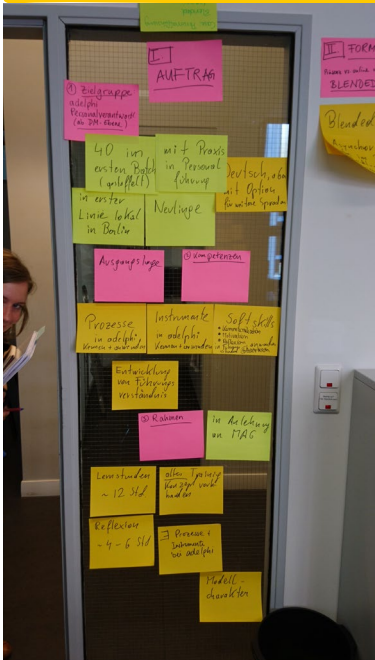 I.
AUFTRAG
① Zielgruppe
adelphi
Personalverantwortl.
(ab DM-Ebene)
40 im
ersten Batch
(gestaffelt)
mit Praxis
in Personal
führung
Deutsch, aber
mit Option
für weitere Sprachen
in erster
Linie lokal
in Berlin
Neulinge
Ausgangslage
Kompetenzen
Prozesse
in adelphi,
kennen + anwenden
Instrumente
in adelphi
kennen + anwenden
Softskills
• Kommunikation
• Motivation
• Reflexion
Entwicklung
von Führungs
verständnis
③ Rahmen
in Anlehnung
an MAG
Lernstunden
~ 12 Std
alter Training
Konzept vorh
handen
Reflexion
~ 4 - 6 Std
∃ Prozesse +
Instrumente
bei adelphi
Modell-
charakter
II. FORM
BLENDED
Blended